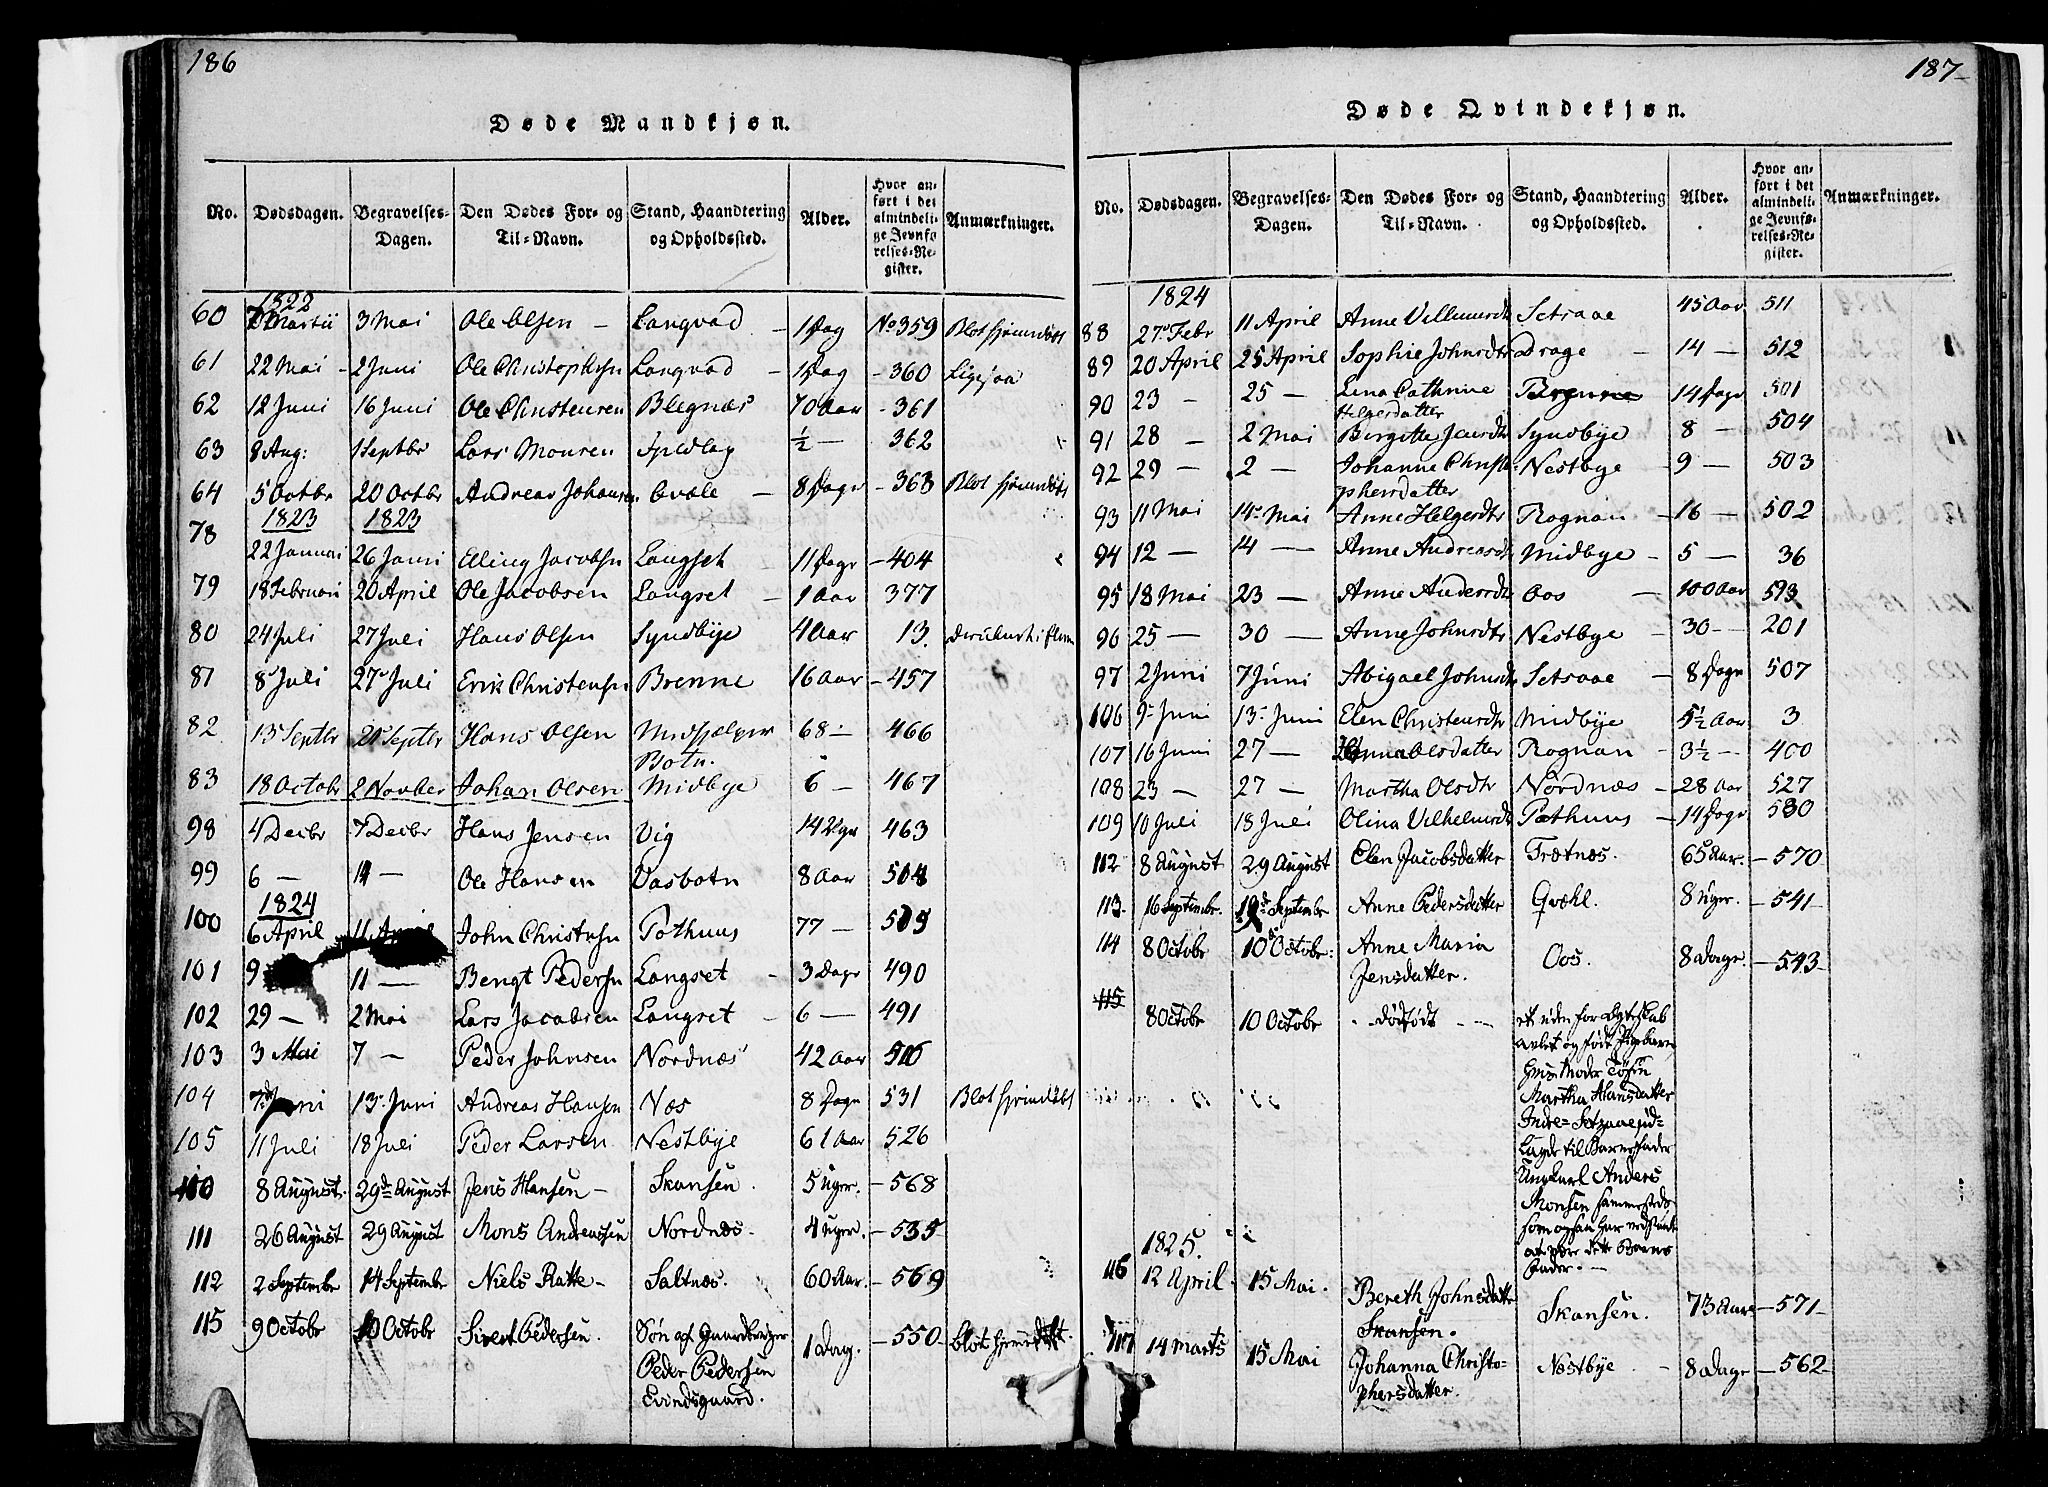 186
Døde Mandkjøn.
No. Dødsdagen. Begravelses-Dagen. Den Dødes For- og Til-Navn. Stand, Haandtering og Opholdssted. Alder. Hvor anført i det almindelige Jevnførelses-Register. Anmærkninger.
1822
60 Martii 3 Mai Ole Olsen – Langvad – 1 Dag No 359 Blot hjemmdøbt
61 22 Mai – 2 Juni Ole Christophersn Langvad – 1 Dag – 360 Ligesaa
62 12 Juni 16 Juni Ole Christensen Blegnæs 70 Aar – 361
63 8 Aug: 1 Septbr Lars Monsen ½ — 362
64 5 Octbr 20 Octbr Andreas Johansen Evale – 8 Dage – 363 Blot hjemmdøbt
1823 1823
78 22 Januari 26 Janri Elling Jacobsn Langset 11 Dage – 404
79 18 Februari 20 April Ole Jacobsen Langset – 1 Aar 377
80 24 Juli 27 Juli Hans Olsen Syndbye 4 Aar 13. Druknet i Elven
81 8 Juli 27 Juli Erik Christensn Brenne 16 Aar – 457
82 13 Septbr 21 Septbr Hans Olsen Midhjelper Botn. 68 – 466
83 18 Octobr 2 Novber Johan Olsen Midbye 6 – 467
98 4 Decbr 7 Decbr Hans Jensen Vig 14 Uger 463
99 6 — 11 — Ole Hansen Vasbotn 8 Aar 508
1824
100 6 April 11 April John Christensn Pothuus 77 – 509
101 9 11 — Bengt Pedersn Langset – 3 Dage 490
102 29 – 2 Mai Lars Jacobsen Langset – 6 — 491
103 3 Mai 7 – Peder Johnsen Nordnæs 42 Aar 506
104 7 Juni 13 Juni Andreas Hansen Næs 8 Dage 531 Blot hjemdøbt
105 11 Juli 18 Juli Peder Larsen Nestbye 61 Aar 526
110 8 August. 29d August Jens Hansen – Skansen. 5 Uger. – 568
111 26 August 29 August Mons Andreassen Nordnæs. 4 Uger. – 535
112 2 Septembr 14 Septembr Niels Ratke – Saltnæs. 60 Aar. – 569
115 9 Octobr 10 Octobr Sivert Pedersen. Søn af Gaardbruger Peder Pedersen Evindsgaard. 1 Dag. – 550 – Blot hjemdøbt.
187
Døde Qvindekjøn.
No. Dødsdagen. Begravelses-Dagen. Den Dødes For- og Til-Navn. Stand, Haandtering og Opholdssted. Alder. Hvor anført i det almindelige Jevnførelses-Register. Anmærkninger.
1824
88 27 Febr 11 April Anne Villumsdtr Setraae 45 Aar 511
89 20 April 25 April Sophie Johnsdtr Drage – 14 — 512
90 23 – 25 – Lena Cathrine Helgesdatter 14 Dage 501
91 28 – 2 Mai Birgitte Jensdtr Syndbye 8 – 504
92 29 – 2 – Johanne Christophersdatter Nestbye – 9 – 503
93 11 Mai 14 Mai Anne Helgesdtr Rognan – 16 – 502
94 12 — 14 — Anne Andreasdtr Midbye – 5 – 36
95 18 Mai 23 – Anne Andersdtr Oos – 100 Aar 593
96 25 — 30 — Anne Johnsdtr Nestbye – 30 – 201
97 2 Juni 7 Juni Abigael Johnsdtr Setraae – 8 Dage 507
106 9 Juni 13 Juni Elen Christensdtr Midbye 5½ Aar 3
107 16 Juni 27 – Olsdatter Rognan – 3½ – 400
108 23 – 27 – Martha Olsdtr Nordnæs – 28 Aar 527
109 10 Juli 18 Juli Olina Vilhelmsdtr Pothuus – 14 Dage 530
112 8 August 29 August Elen Jacobsdatter Trætnæs. 65 Aar. – 570
113 16 Septembr. 19d Septembr Anne Pedersdatter Qvæhl. 8 Uger. – 541 –
114 8 Octobr 10d Octobr: Anne Maria Jensdatter. Oos. 8 Dage. – 543 –
115 8 Octobr 10 Octobr – Dødfødt – et uden for Ægteskab
avlet og født Pigebarn
hvis Moder Tøsen
Martha Hansdatter
Indre-Setraae ud-
lagde til Barnefader
Ungkarl Anders
Monsen sammesteds
som ogsaa har vedstaaet
at være dette Barns
Fader. –
1825.
116 12 April. 15 Mai. Bereth Johnsdatter Skansen. Skansen. 73 Aar – 571 –
117 14 Marts 15 Mai Johanna Christophersdatter. Nestbye – 8 Dage – 562 –